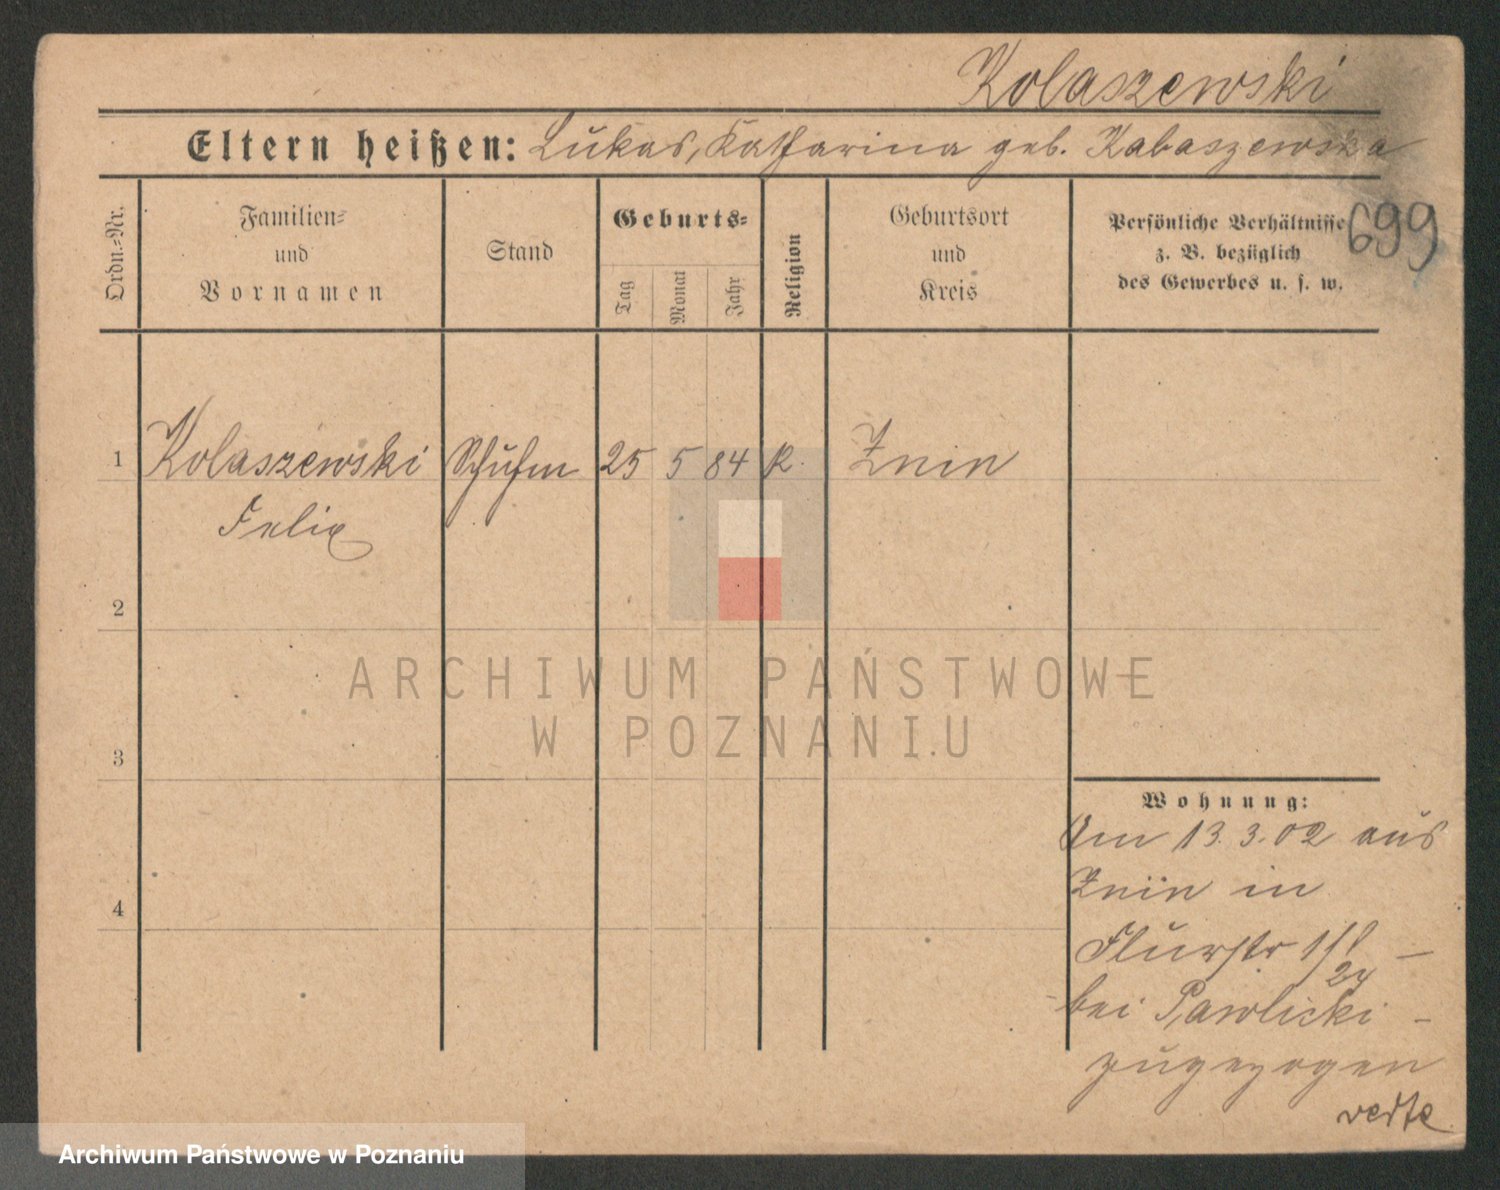 Kolaszewski
Eltern heißen: Lukas, Katharina geb. Kabaszewska
Ordn.-Nr.
Familien- und Vornamen
Stand
Geburts-
Tag
Monat
Jahr
Religion
Geburtsort und Kreis
Persönliche Verhältnisse
z. B. bezüglich
des Gewerbes u. s. w.
699
1 Kolaszewski Schuhm 25 5 84 K. Znin
Felix
2
3
4
Wohnung:
Am 13.3.02 aus
Znin in
Flurstr
bei Pawlicki -
zugezogen
verte
ARCHIWUM PAŃSTWOWE
W POZNANIU
Archiwum Państwowe w Poznaniu